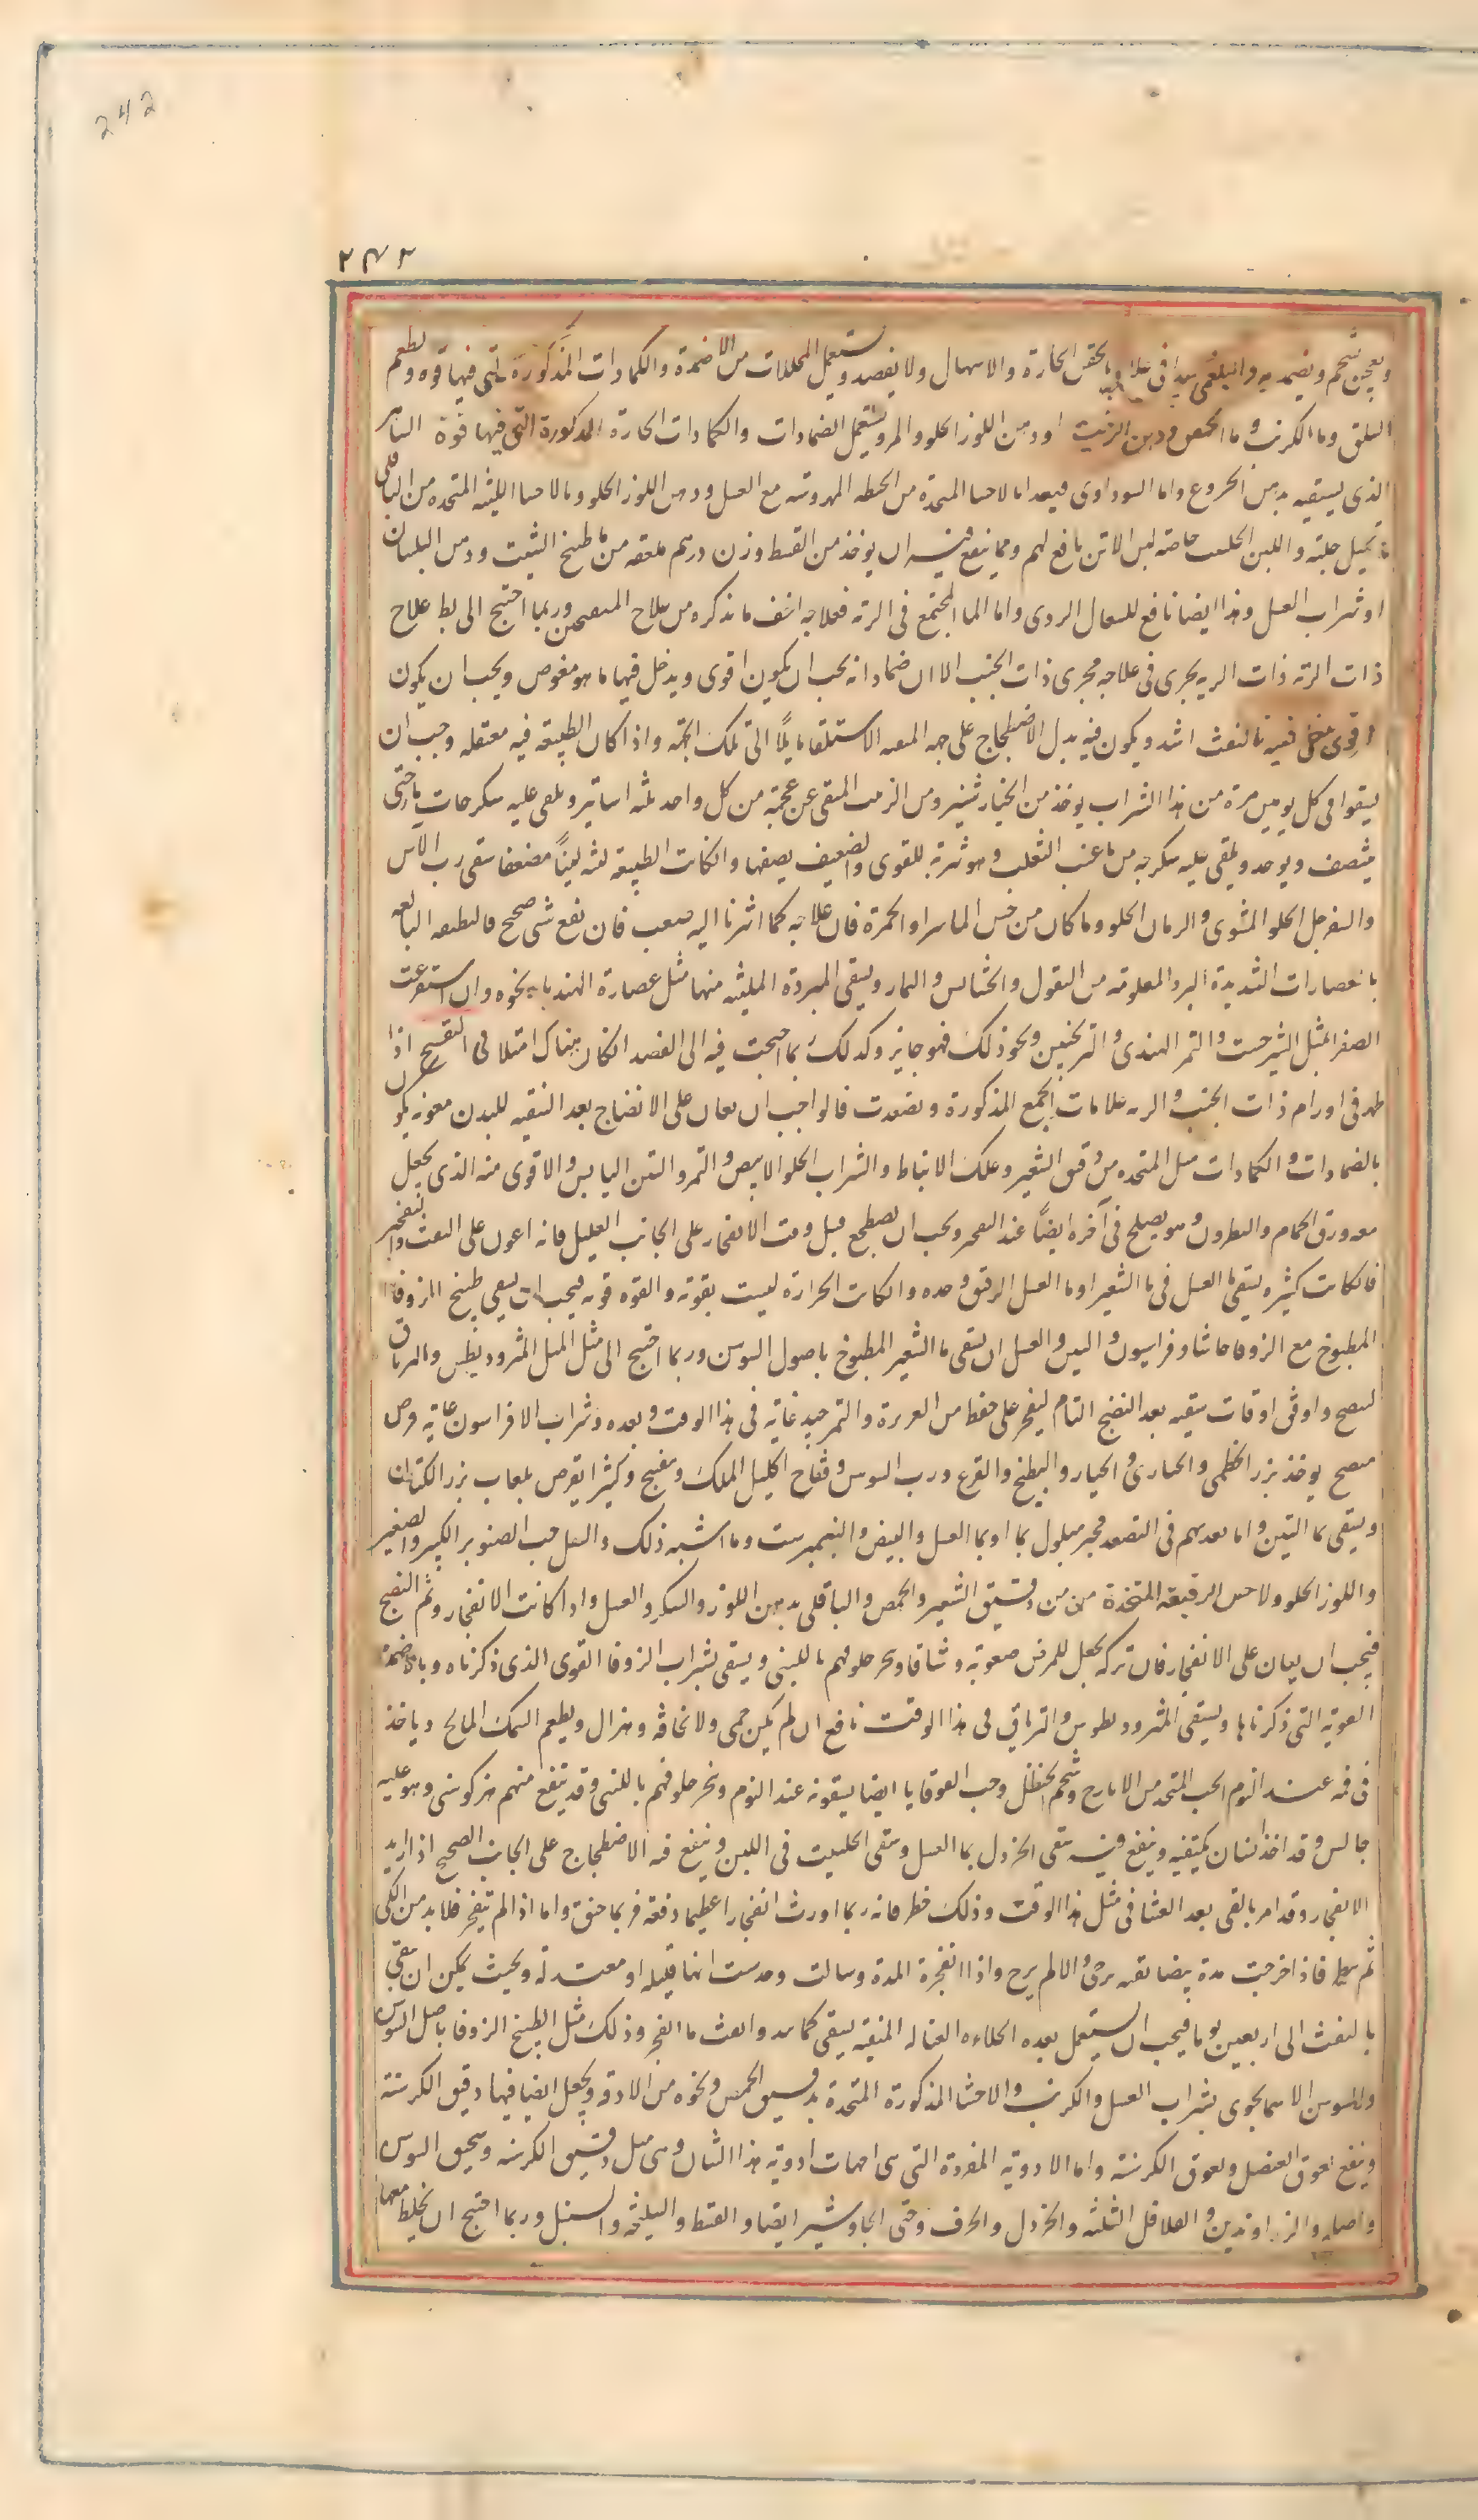 242
٢٤٢
ويعجن بشحم ويضمد به واما البلغمي فيبدا في علاجه بالحقن الحارة والاسهال ولا يفصد ويستعمل المحللات من الاضمدة والكمادات المذكورة التي فيها قوة ويطعم
السلق وما الكرنب وما الحمص ودهن الزيت او دهن اللوز الحلو والمر ويستعمل الضمادات والكمادات الحارة المذكورة التي فيها قوة
الذي يسقيه بدهن الخروع واما السوداوي فبعد امالاحسا المتخذة من الحنطه المهروسه مع العسل ودهن اللوز الحلو وبالاحسا اللينه المتخده من الباقلى
واللبن الحليب خاصه لبن الاتن نافع لهم ومما ينفع فيه ان يوخذ من القسط وزن درهم ملعقه من ما طبخ الشبت ودهن البلسان
او شراب العسل وهذا ايضا نافع للسعال الردى واما الما المجتمع في الرئة فعلاجه اخف ما نذكره من علاج المتقيحين وربما احتيج الى بط علاج
ذات الرئه ذات الريه يجرى في علاجه مجرى ذات الجنب الا ان ضماداته يجب ان يكون اقوى ويدخل فيها ما هو مغوص ويجب ان يكون
تنقيه بالنفث اشد ويكون فيه بدل الاضطجاع على جهه الاستلقا مايلا الى تلك الجهة واذا كان الطبيعه فيه معتقله وجب ان
يسقوا في كل يومين مرة من هذا الشراب يوخذ من الخيار شنبر ومن الزبيب المنقى عن عجمه من كل واحد ثلثه اساتير ويلقى عليه سكرجات ما حتى
ينتصف ويوخد ويلقى عليه سكرجه من ما عنب الثعلب وهو شربة للقوى والضعيف نصفها وانكانت الطبيعه لينه لينا مضعفا سقى رب الاس
والسفرجل الحلو المشوى والرمان الحلو وما كان من جنس الماسرا والحمرة فان علاجه كما اشرنا اليه صعب فان نفع شى صحيح فالتطفيه البالغه
بالعصارات الشديدة البرد المعلومه من البقول والحشايش والثمار ويسقى المبردة المليثه منها مثل عصارة الهندبا ونحوه وان استفرغت
الصفرا بمثل الشيرخشت والتمر الهندى والترنجبين ونحو ذلك فهو جايز وكذلك ربما احتجت فيه الى الفصد انكان هناك امتلا فى التقيح اذا
ظهر في اورام ذات الجنب والريه علامات الجمع المذكورة وتصعدت فالواجب ان يعان على الانضاج بعد التنقيه للبدن معونه يكون
بالضمادات والكمادات مثل المتخده من دقيق الشعير وعلك الانباط والشراب الحلو الابيض والتمر والتين اليابس والاقوى منه الذى يجعل
معه ورق الحمام والنطرون وهو يصلح في آخره ايضا عند الفجر ويجب ان يضطجع قبل وقت الانفجار على الجانب العليل فانه اعون على النفث والتفجير
فان كانت كثيره يسقى ما العسل في ما الشعير او ما العسل الرقيق وحده وان كانت الحرارة ليست بقوية والقوه قوية فيجب ان يسقى طبيخ الزوفا
المطبوخ مع الزوفا حاشا وفراسيون والتين والعسل ان يسقى ما الشعير المطبوخ باصول السوس وربما احتيج الى مثل المثروديطس والترياق
لينضج واوفى اوقات سقيه بعد النضج التام ليفجر على حفظ من الغريزة والتمر جيد غاية في هذا الوقت وبعده وشراب الافراسيون غاية قرص
منضج يوخذ بزر الخطمى والخبازى والخيار والبطيخ والقرع ورب السوس وفقاح اكليل الملك وبنفسج وكثيرا يقرص بلعاب بزر الكتان
ويسقى بما التين واما تغديهم في التصعد فخبز مبلول بما او بما العسل والبيض والنيمبرشت وما اشبه ذلك والنقل حب الصنوبر الكبير والصغير
واللوز الحلو والاحسا الرقيقه المتخذة من دقيق الشعير والحمص والباقلى بدهن اللوز والسكر والعسل واذا كانت الانفجار وتم النضج
فيجب ان يعان على الانفجار فان تركه يجعل للمرض صعوبة وشاقا ويبخر حلوقهم باللبنى ويسقى شراب الزوفا القوى الذى ذكرناه وبالاضمدة
القوية التي ذكرناها ويسقى المثروديطوس والترياق فى هذا الوقت نافع ان لم يكن حمى ولا نحافة وهزال ويطعم السمك المالح وياخذ
في فمه عند النوم الحب المتخذ من الايارج وشحم الحنظل وحب القوقايا ايضا يسقونه عند النوم وتبخر حلوقهم باللبنى وقد ينفع منهم هز كرسى وهو عليه
جالس وقد اخذ انسان بكتفيه وينفع فيه سقى الخردل بما العسل وسقى الحلتيت في اللبن وينفع فيه الاضطجاع على الجانب الصحيح اذا اريد
الانفجار وقد امر بالقى بعد العشا في مثل هذا الوقت وذلك خطر فانه ربما اورث انفجارا عظيما دفعة فربما خنق واما اذا لم يتفجر فلابد من الكى
ثم يبط فاذا خرجت مدة بيضا نقيه رجى والا لم يرج واذا انفجرة المدة وسالت وحدست انها قليله او معتدلة وبحيث يمكن ان تنقى
بالنفث الى اربعين يوما فيجب ان يستعمل بعده الجلاءه الغساله المنقية ليسقى وانفث ما انفجر وذلك مثل طبيخ الزوفا باصل السوس
والسوسن الاسمانجونى بشراب العسل والكرنب والاحشا المذكورة المتخدة بدقيق الحمص ونحوه من الادقة ويجعل ايضا فيها دقيق الكرسنة
وينفع لعوق العنصل ولعوق الكرسنة واما الادوية المفردة التى هى امهات ادوية هذا الشان وهى مثل دقيق الكرسنه وسحيق السوس
والزراوندين والفلافل الثلثه والخردل والحرف وحتى الجاوشير ايضا والقسط والسليخه والسنبل وربما احتيج ان يخلط معها